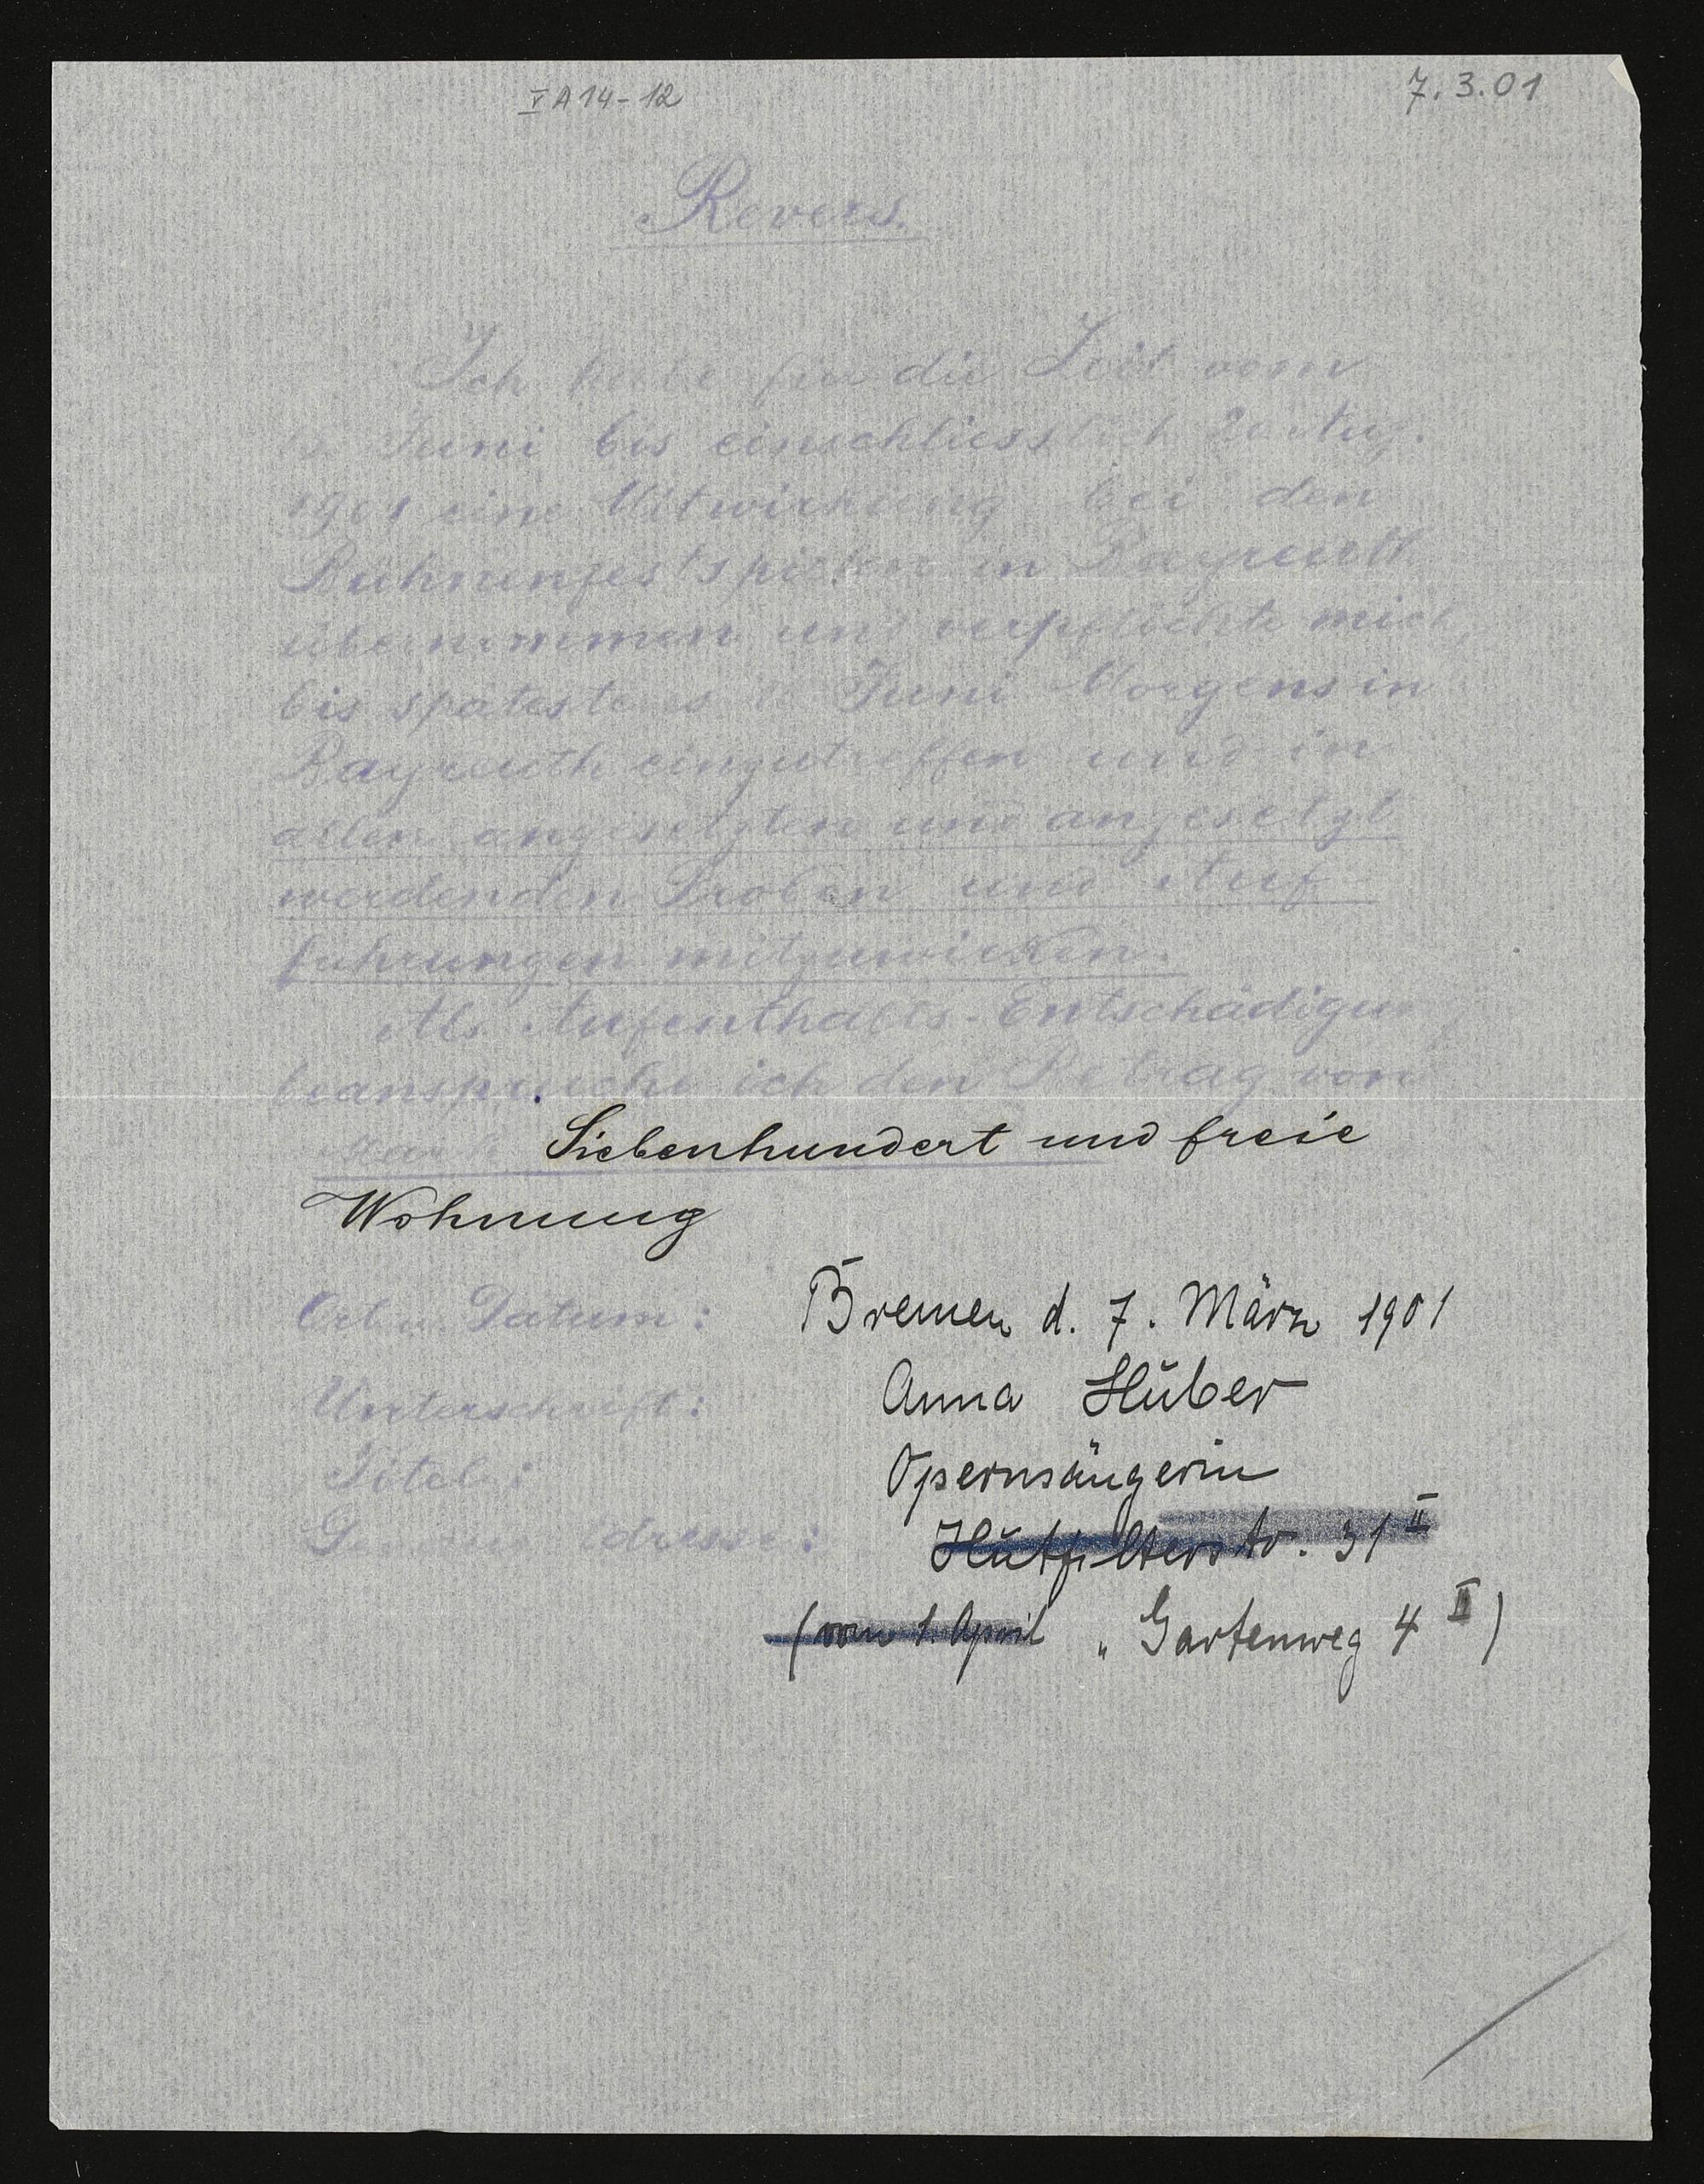 V A 14-12
7.3.01
Revers.
Ich habe für die Zeit vom
Juni bis einschliesslich 20. Aug.
1901 eine Mitwirkung bei den
Bühnenfestspielen in Bayreuth
übernommen und verpflichte mich,
bis spätestens Juni Morgens in
Bayreuth einzutreffen und in
allen angesetzten und angesetzt
werdenden Proben und Auf-
führungen mitzuwirken.
Als Aufenthalts-Entschädigung
beanspruche ich den Betrag von
Mark Siebenhundert und freie
Wohnung
Ort u. Datum: Bremen d. 7. März 1901
Unterschrift: Anna Hüber
Titel: Opernsängerin
Genaue Adresse: Hutfilterstr. 31 II
(vom 1. April „ Gartenweg 4 II)